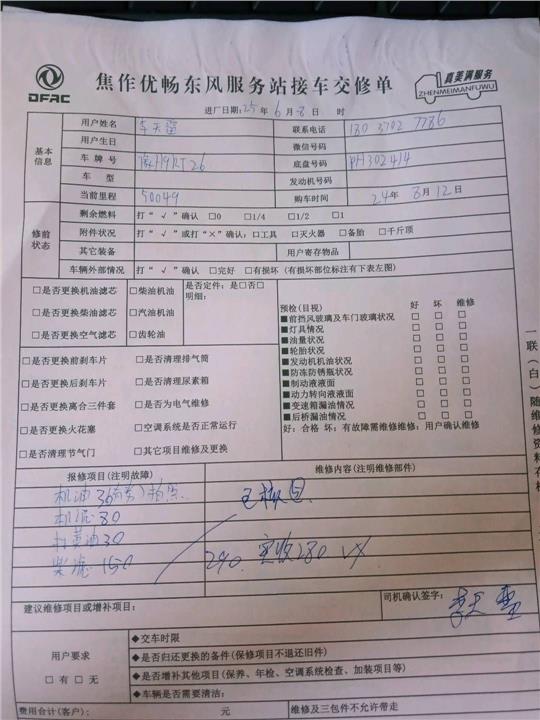 DFAC
焦作优畅东风服务站接车交修单
真美满服务
ZHENMEIMANFUWU
进厂日期:25年6月8日 时
基本信息
用户姓名 联系电话
用户生日 微信号码
车牌号 底盘号码 PH302414
车型 发动机号码
当前里程 50049 购车时间 24年8月12日
修前状态
剩余燃料 打“√”确认 □0 □1/4 □1/2 □1
附件状况 打“√”或打“×”确认,□工具 □灭火器 □备胎 □千斤顶
其它装备 用户寄存物品
车辆外部情况 打“√”确认 □完好 □有损坏(有损坏部位标注有下表左图)
□是否更换机油滤芯 □柴油机油
□是否更换柴油滤芯 □汽油机油
□是否更换空气滤芯 □齿轮油
是否定件:是□否□
明细:
□是否更换前刹车片 □是否清理排气筒
□是否更换后刹车片 □是否清理尿素箱
□是否更换离合三件套 □是否为电气维修
□是否更换火花塞 □空调系统是否正常运行
□是否清理节气门 □其它项目维修及更换
预检(目视) 好 坏 维修
■前挡风玻璃及车门玻璃状况 □ □ □
■灯具情况 □ □ □
■油量状况 □ □ □
■轮胎状况 □ □ □
■发动机机油状况 □ □ □
■防冻防锈瓶状况 □ □ □
■制动液液面 □ □ □
■动力转向液液面 □ □ □
■变速箱漏油情况 □ □ □
■后桥漏油情况 □ □ □
好:合格 坏:有故障需维修维修:用户确认维修
报修项目(注明故障) 维修内容(注明维修部件)
机滤80
打黄油30
柴滤150
290. 实收280
建议维修项目或增补项目:
司机确认签字:
用户要求
□有 □无
◆交车时限
◆是否归还更换的备件(保修项目不退还旧件)
◆是否增补其他项目(保养、年检、空调系统检查、加装项目等)
◆车辆是否需要清油:
费用合计(客户): 元 维修及三包件不允许带走
一联(白)随维修资料存